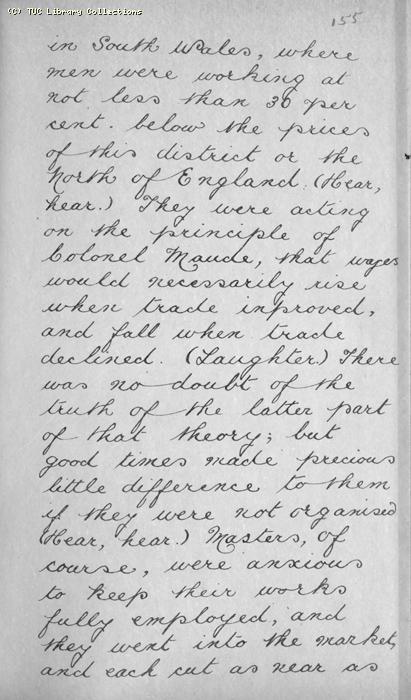 (C) TUC Library Collections
155
in South Wales, where
men were working at
not less than 30 per
cent. below the prices
of this district or the
North of England. (Hear,
hear.) They were acting
on the principle of
Colonel Maude, that wages
would necessarily rise
when trade inproved,
and fall when trade
declined. (Laughter.) There
was no doubt of the
truth of the latter part
of that theory; but
good times made precious
little difference to them
if they were not organised
(Hear, hear.) Masters, of
course, were anxious
to keep their works
fully employed, and
they went into the market,
and each cut as near as